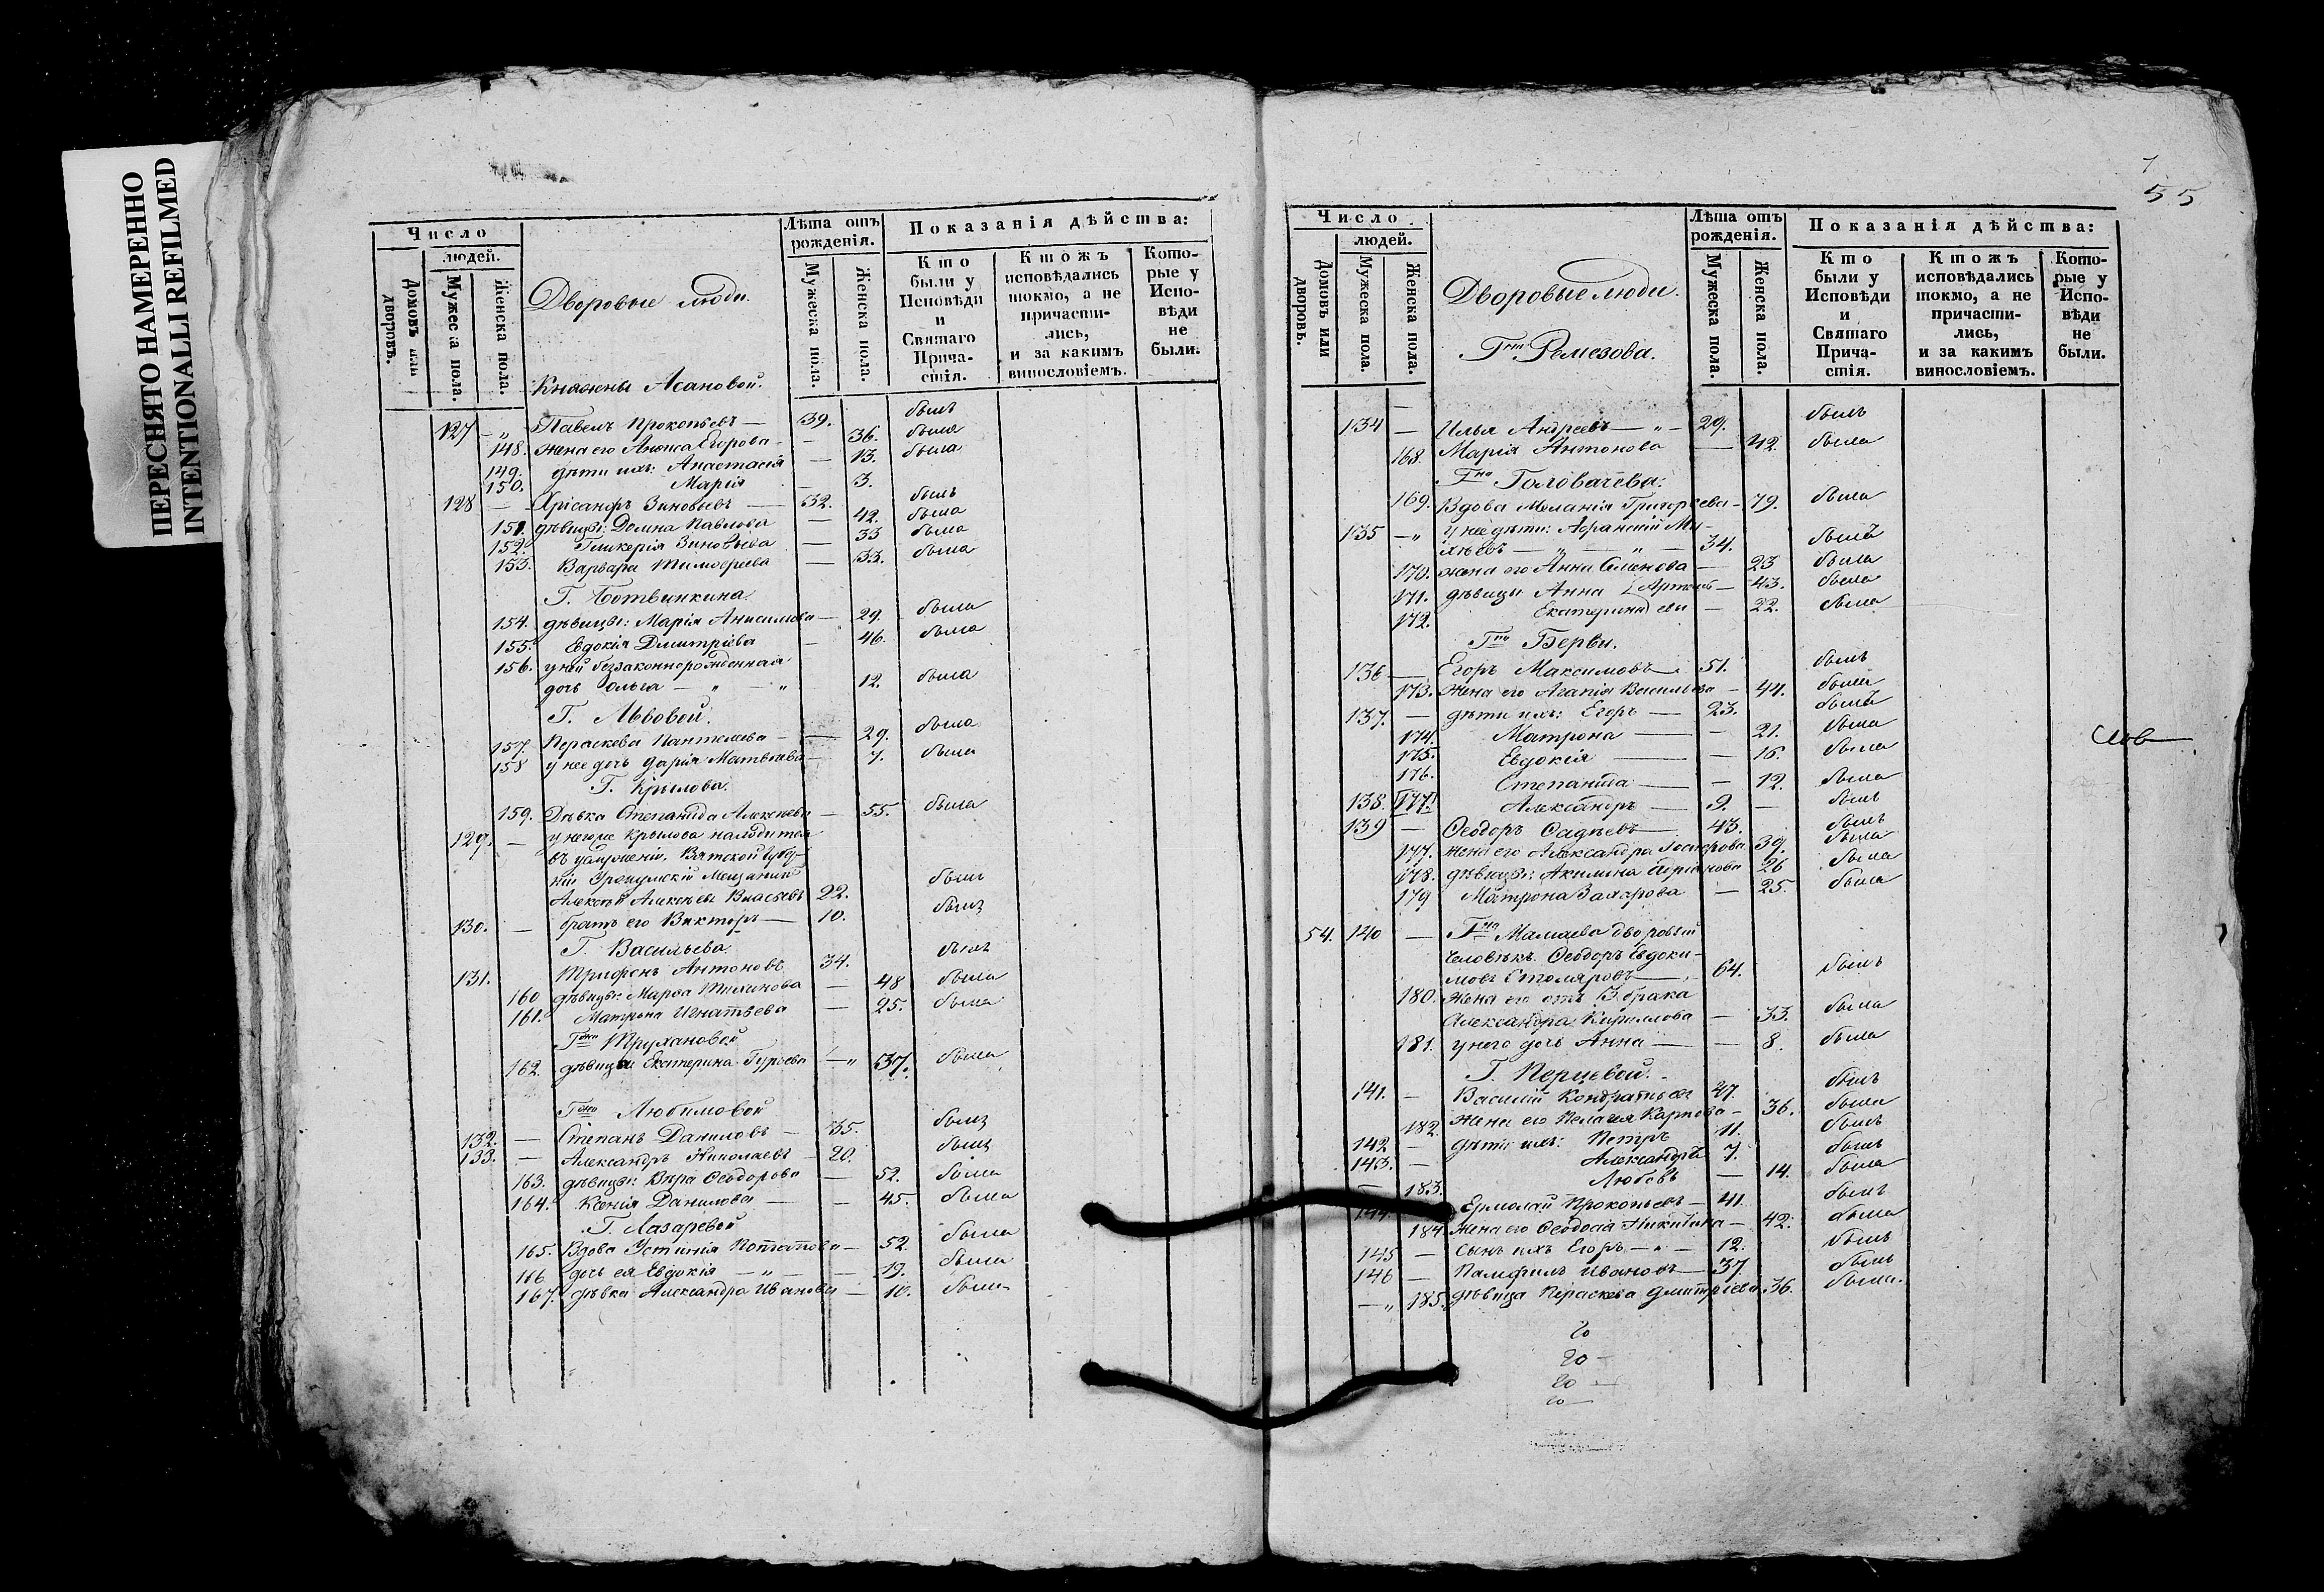 ПЕРЕСНЯТО НАМЕРЕННО
INTENTIONALLI REFILMED
Число
людей.
Домовъ или дворовъ.
Мужеска пола.
Женска пола.
Дворовые люди.
Лѣта отъ рожденія.
Мужеска пола.
Женска пола.
Показанія дѣйства:
Кто были у Исповѣди и Святаго Причастія.
Ктожъ исповѣдались токмо, а не причастились, и за какимъ винословіемъ.
Которые у Исповѣди не были.
Княжны Асановой.
127 — „ Павелъ Прокопьевъ — 39. былъ
148. жена его Анѳиса Егорова — 36. была
149. дѣти ихъ: Анастасія — 13. была
150. Марія — 3.
128 — Хрісанфъ Зиновьевъ — 32. былъ
151. дѣвицы: Домна Павлова — 42. была
152. Гликерія Зиновьева — 33 была
153. Варвара Тимоѳеева — 33. была
Г. Ботвинкина.
154. дѣвицы: Марія Анисимова — 29. была
155. Евдокія Дмитріева — 46. была
156. у ней беззаконнорожденная
дочь Ольга — „ — „ 12. была
Г. Львовой.
157. Параскева Пантелеева — 29. была
158 у нее дочь Дарія Матвѣева — 7. была
Г. Крылова.
159. Дѣвка Степанида Алексѣева — 55. была
129. — у негоже Крылова находится
въ услуженіи, Вятской Губер-
ніи Уржумскій Мещанинъ
Алексѣй Алексѣевъ Власьевъ 22. былъ
130. — братъ его Викторъ — 10. былъ
Г. Васильева.
131. Трифонъ Антоновъ 34. былъ
160 дѣвицы: Марѳа Тихонова — 48 была
161. Матрона Игнатьева — 25. была
Гжи Трухановой
162. дѣвица Екатерина Гурьева — „ 37. была
Гжи Любимовой
132. — Степанъ Даниловъ — 35. былъ
133. — Александръ Николаевъ — 20. былъ
163. дѣвицы: Вѣра Ѳеодорова — 52. была
164. Ксенія Данилова — — 45. была
Г. Лазаревой
165. Вдова Устинія Потапова — 52. была
166 дочь ея Евдокія — „ — 19. была
167. дѣвка Александра Иванова — 10. была
55
Число
людей.
Домовъ или дворовъ.
Мужеска пола.
Женска пола.
Дворовые люди.
Лѣта отъ рожденія.
Мужеска пола.
Женска пола.
Показанія дѣйства:
Кто были у Исповѣди и Святаго Причастія.
Ктожъ исповѣдались токмо, а не причастились, и за какимъ винословіемъ.
Которые у Исповѣди не были.
Гна Ремезова.
134 — Илья Андреевъ — „ — 29. былъ
168. Марія Антонова — 42. была
Гна Головачева.
169. Вдова Меланія Григорьева — 79. была
135 — „ у нее дѣти: Афанасій Ми-
хѣевъ — „ — „ — 34. былъ
170. жена его Анна Семенова — 23 была
171. дѣвицы Анна } Артемь- — 43. была
172. Екатерина } евы — 22. была
Гна Берви.
136 — Егоръ Максимовъ 51. былъ
173. Жена его Агапія Васильева — 44. была
137. — дѣти ихъ: Егоръ — 23. былъ
174. Матрона — — 21. была
175. Евдокія — — 16. была
176. Степанида — — 12. была
138. 177. Александръ — 9. — былъ
139 — Ѳеодоръ Ѳадѣевъ — 43. былъ
177. жена его Александра 39. была
178. дѣвицы: Акилина Адріанова 26 была
179 Матрона Захарова — 25. была
54. 140 — Гна Мамаева дворовый
человѣкъ Ѳеодоръ Евдоки-
мовъ Столяровъ — 64. былъ
180. Жена его отъ 3. брака
Александра Кирилова — 33. была
181. у него дочь Анна — — 8. была
Г. Перцевой.
141. — Василій Кондратьевъ 47. былъ
182. Жена его Пелагея Карпова — 36. была
142 — Дѣти ихъ: Петръ 11. былъ
143. — Александръ 7. былъ
183. Любовь — 14. была
144. Ермолай Прокопьевъ — 41. былъ
184. Жена его Ѳеодосія Никитина — 42. была
145 — Сынъ ихъ Егоръ — „ — 12. былъ
146 — Памфилъ Ивановъ — 37 былъ
— „ 185. дѣвица Параскева Дмитріева 36. была.
20
20 —
20 —
20 —